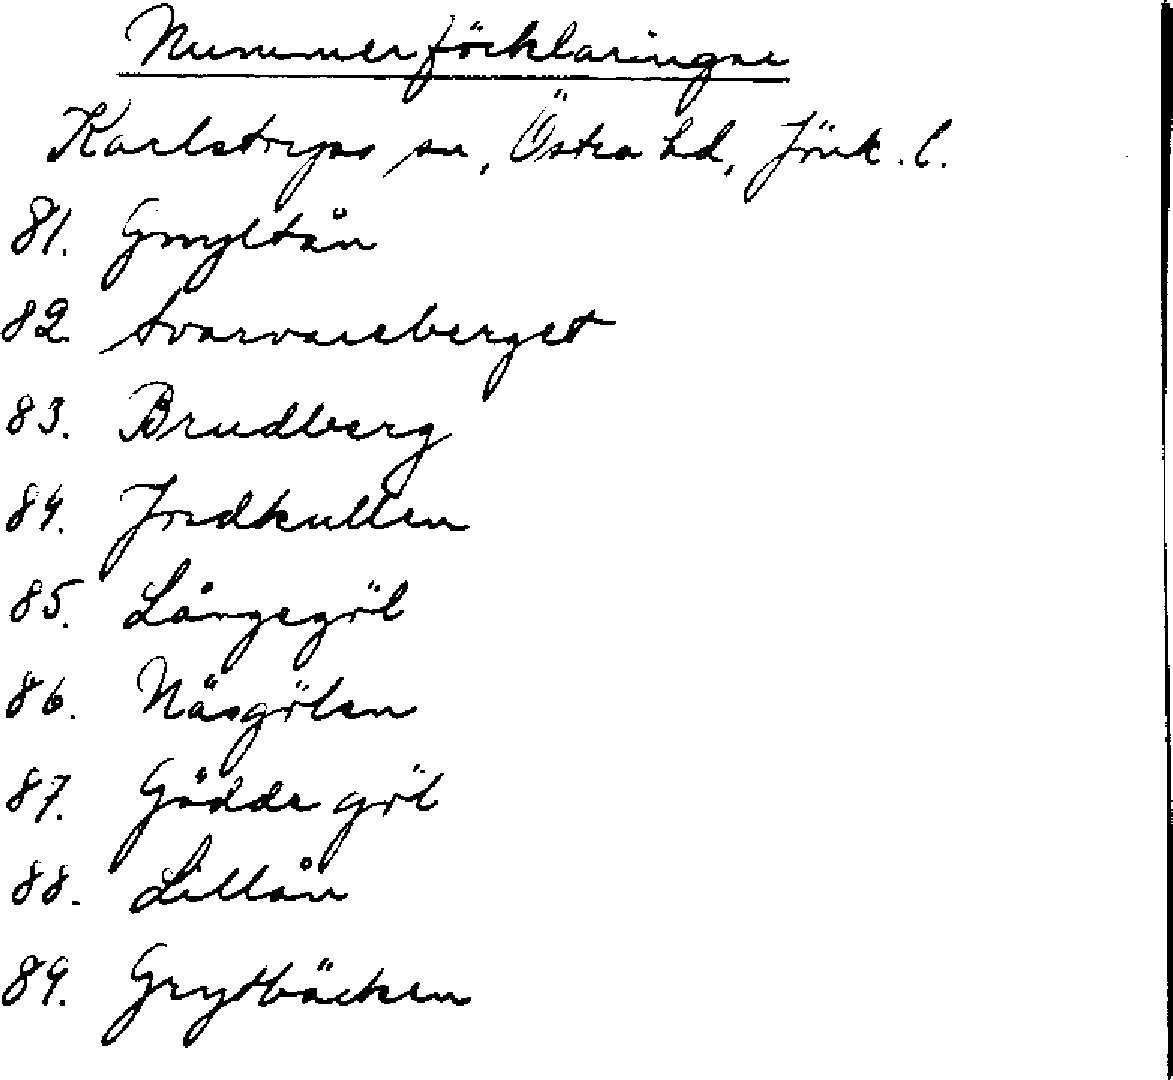 Nummerförklaringar
Karlstorps sn, Östra hd, Jönk. l.
81. Gnyltån
82 Svarvareberget
83. Brudberg
84. Jordkullen
85. Långegöl
86. Näsgölen
87. Gäddegöl
88. Lillån
89. Grytbäcken